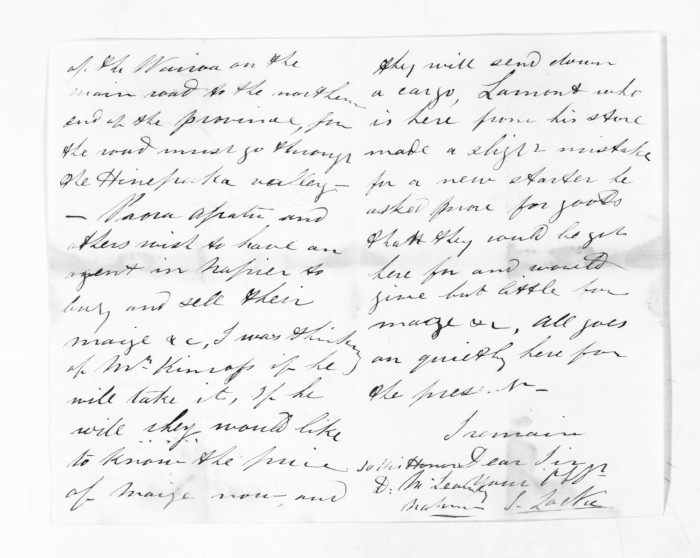 of the Wairoa on the
main road to the northern
end of the province, for
the road must go through
the Hinepaka valley –
– Paora Apatu and
others wish to have an
agent in Napier to
buy and sell their
maize &c, I was thinking
of Mr Kinross if he
will take it, If he
will they would like
to know the price
of maize now, and
they will send down
a cargo, Lamont who
is here from his store
made a slight mistake
for a new starter he
asked more for goods
than they could be got
here for and would
give but little for
maize &c, All goes
on quietly here for
the present –
I remain
Dear Sir
Your
S. Locke
To His Honor
D. McLean
Napier